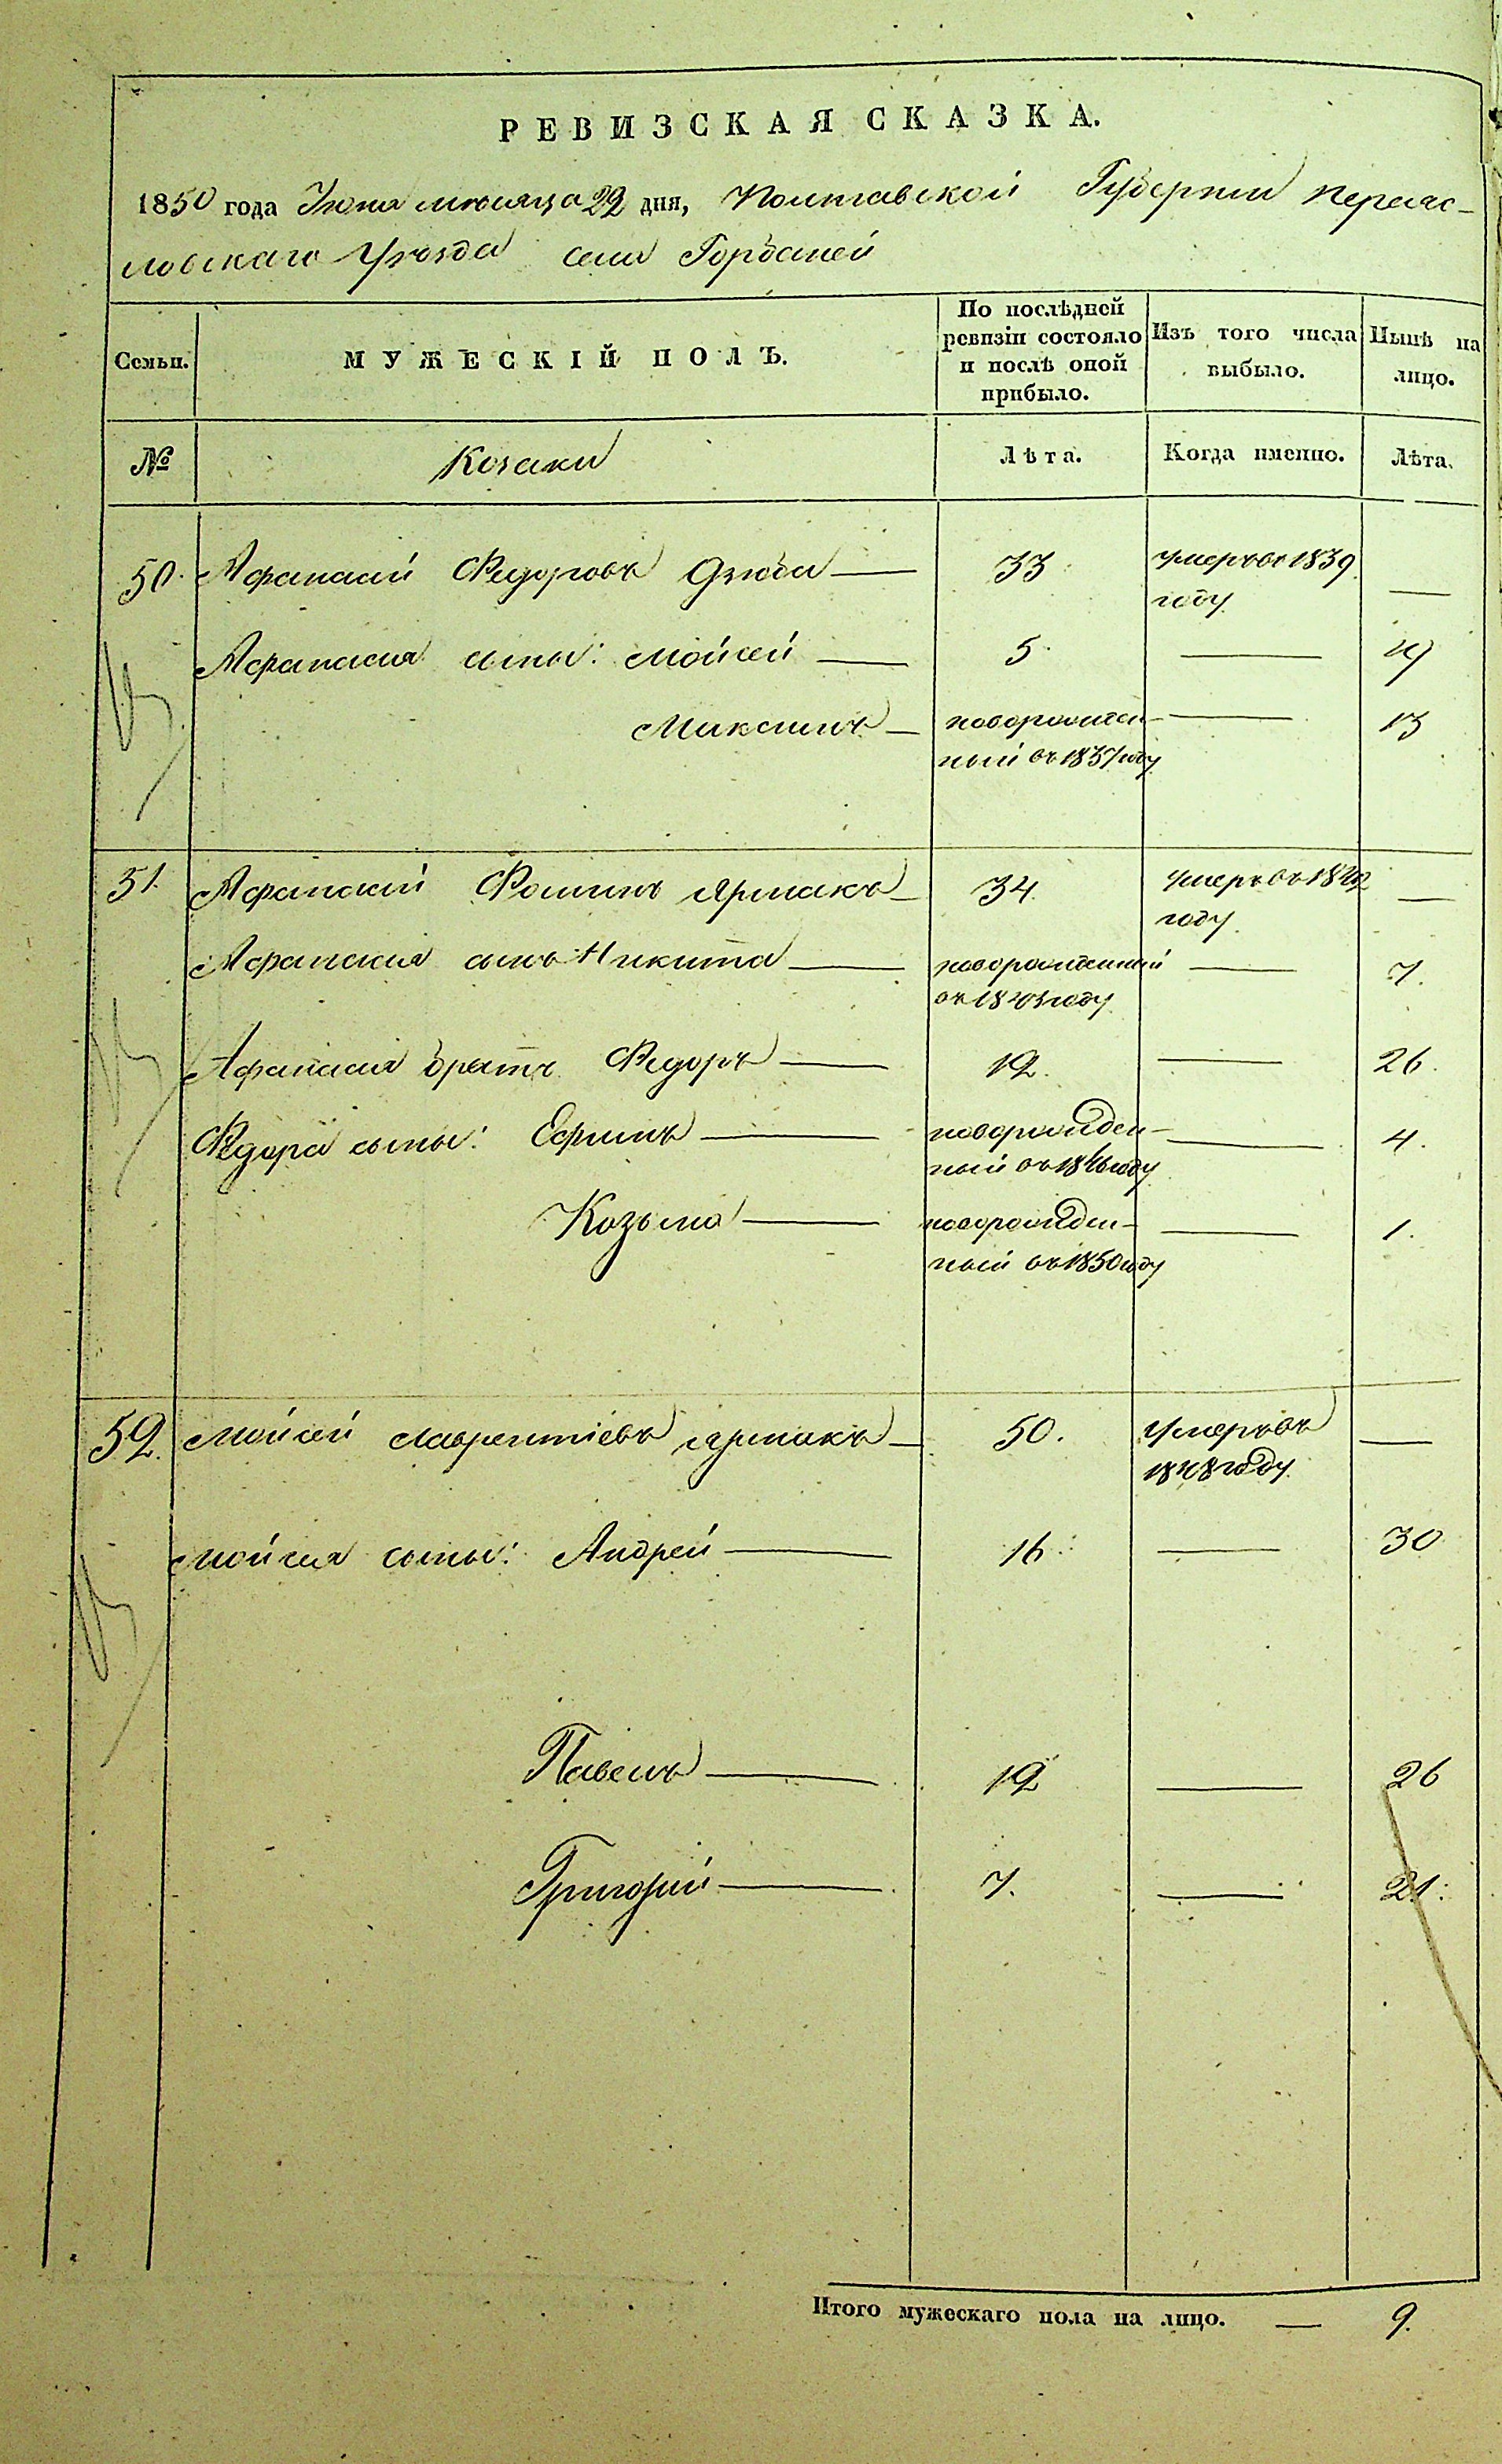 РЕВИЗСКАЯ СКАЗКА.
1850 года Іюня мѣсяца 22 дня, Полтавской Губерніи Переяс-
ловскаго Уѣзда села Горбаней
Семьи.
МУЖЕСКІЙ ПОЛЪ.
По послѣдней
ревизіи состояло
и послѣ оной
прибыло.
Изъ того числа
выбыло.
Нынѣ на
лицо.
№
Козаки
Лѣта.
Когда именно.
Лѣта.
50. Афанасій Федоровъ Дзюба — 33 умеръ въ 1839
году —
Афанасія сыны: Мойсей — 5 — 19
Максимъ — новорожден- — 13
ный въ 1837 году
51. Афанасій Фоминъ Ярмакъ — 34. умеръ въ 1842 —
году.
Афанасія сынъ Никита — новорожденный — 7.
въ 1843 году
Афанасія братъ Федоръ — 12. — 26.
Федора сыны: Ефимъ — новорожден- — 4.
ный въ 1846 году
Козьма — новорожден- — 1.
ный въ 1850 году
52. Мойсей Лаврентіевъ Ярмакъ — 50. Умеръ въ —
1848 году.
Мойсея сыны: Андрей — 16. — 30
Павелъ — 12 — 26
Григорій — 7. — 21.
Итого мужескаго пола на лицо. — 9.